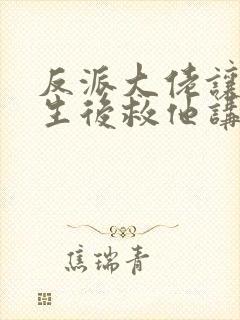 反派大佬讓
生後救他講
焦瑞青